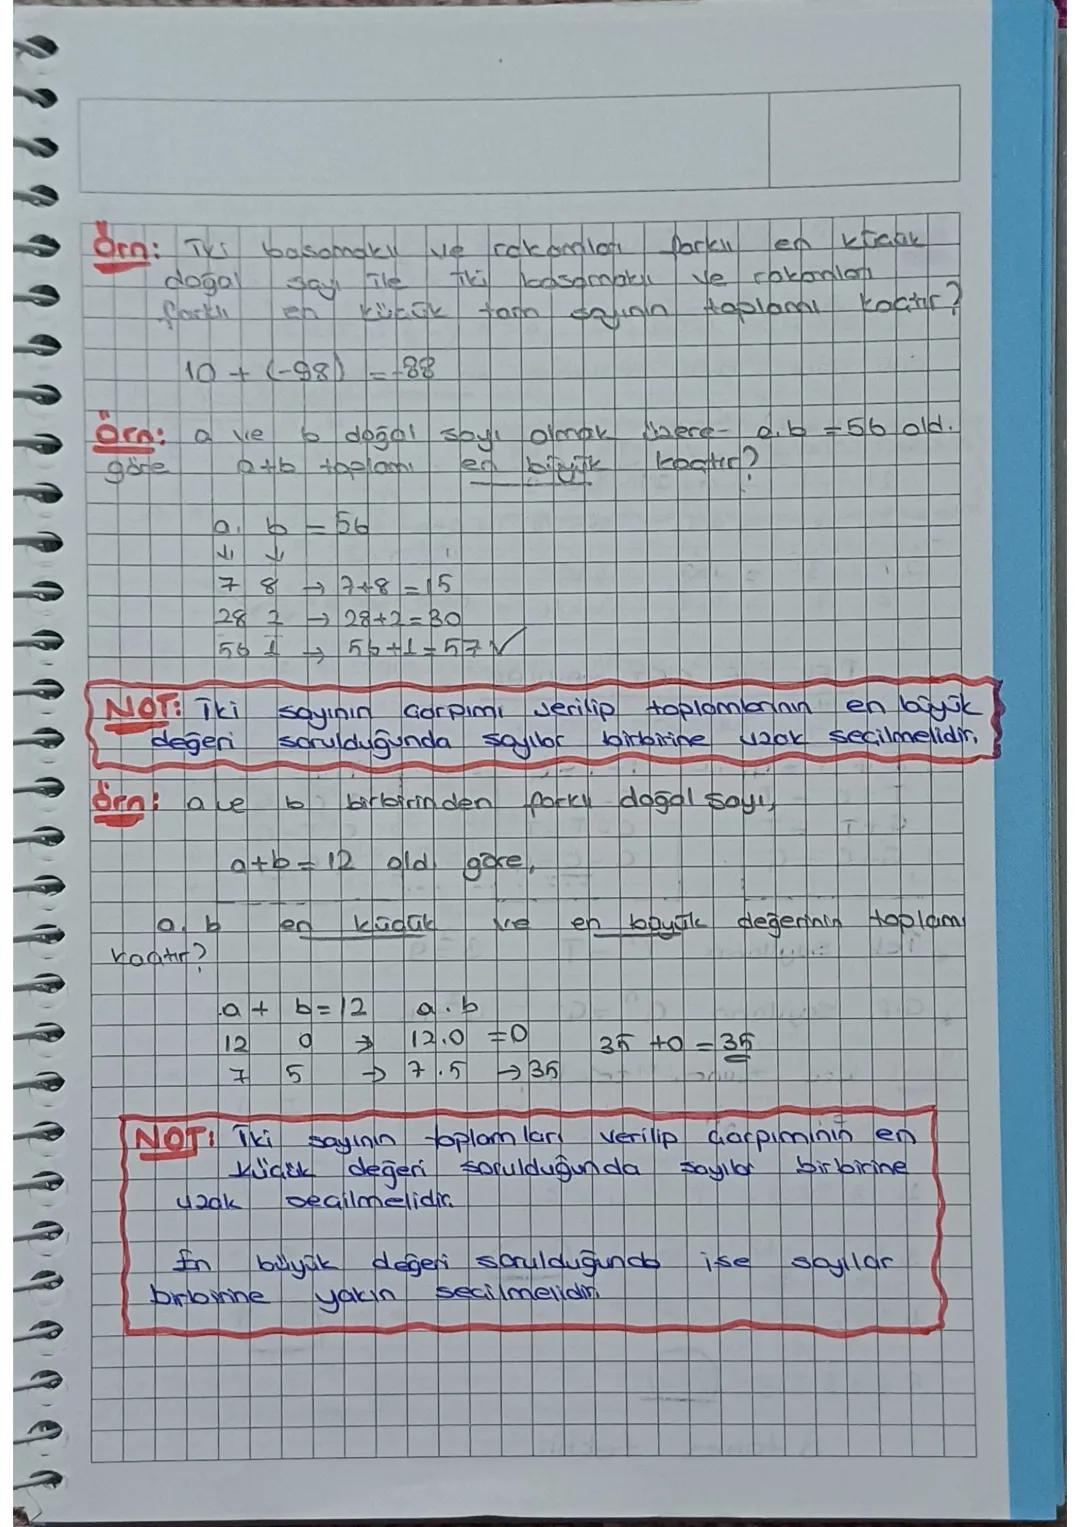 Örn: İki basamaklı ve rakamları farklı en küçük
doğal sayı ile iki basamaklı ve rakamları
farklı en küçük tam sayının toplamı kaçtır?
10 + (-98) = -88
Örn: a ve b doğal sayı olmak üzere a.b = 56 old.
göre a+b toplamı en büyük kaçtır?
a. b = 56
↓ ↓
7 8 → 7+8 = 15
28 2 → 28+2 = 30
56 1 → 56+1 = 57 ✓
NOT: İki sayının çarpımı verilip toplamlarının en büyük
değeri sorulduğunda sayılar birbirine uzak seçilmelidir.
Örn: a ve b birbirinden farklı doğal sayı,
a+b = 12 old. göre,
a. b en küçük ve en büyük değerinin toplamı
kaçtır?
a + b = 12 a . b
12 0 → 12.0 = 0 35 + 0 = 35
7 5 → 7.5 → 35
NOT: İki sayının toplamları verilip çarpımının en
küçük değeri sorulduğunda sayılar birbirine
uzak seçilmelidir.
En büyük değeri sorulduğunda ise sayılar
birbirine yakın seçilmelidir.